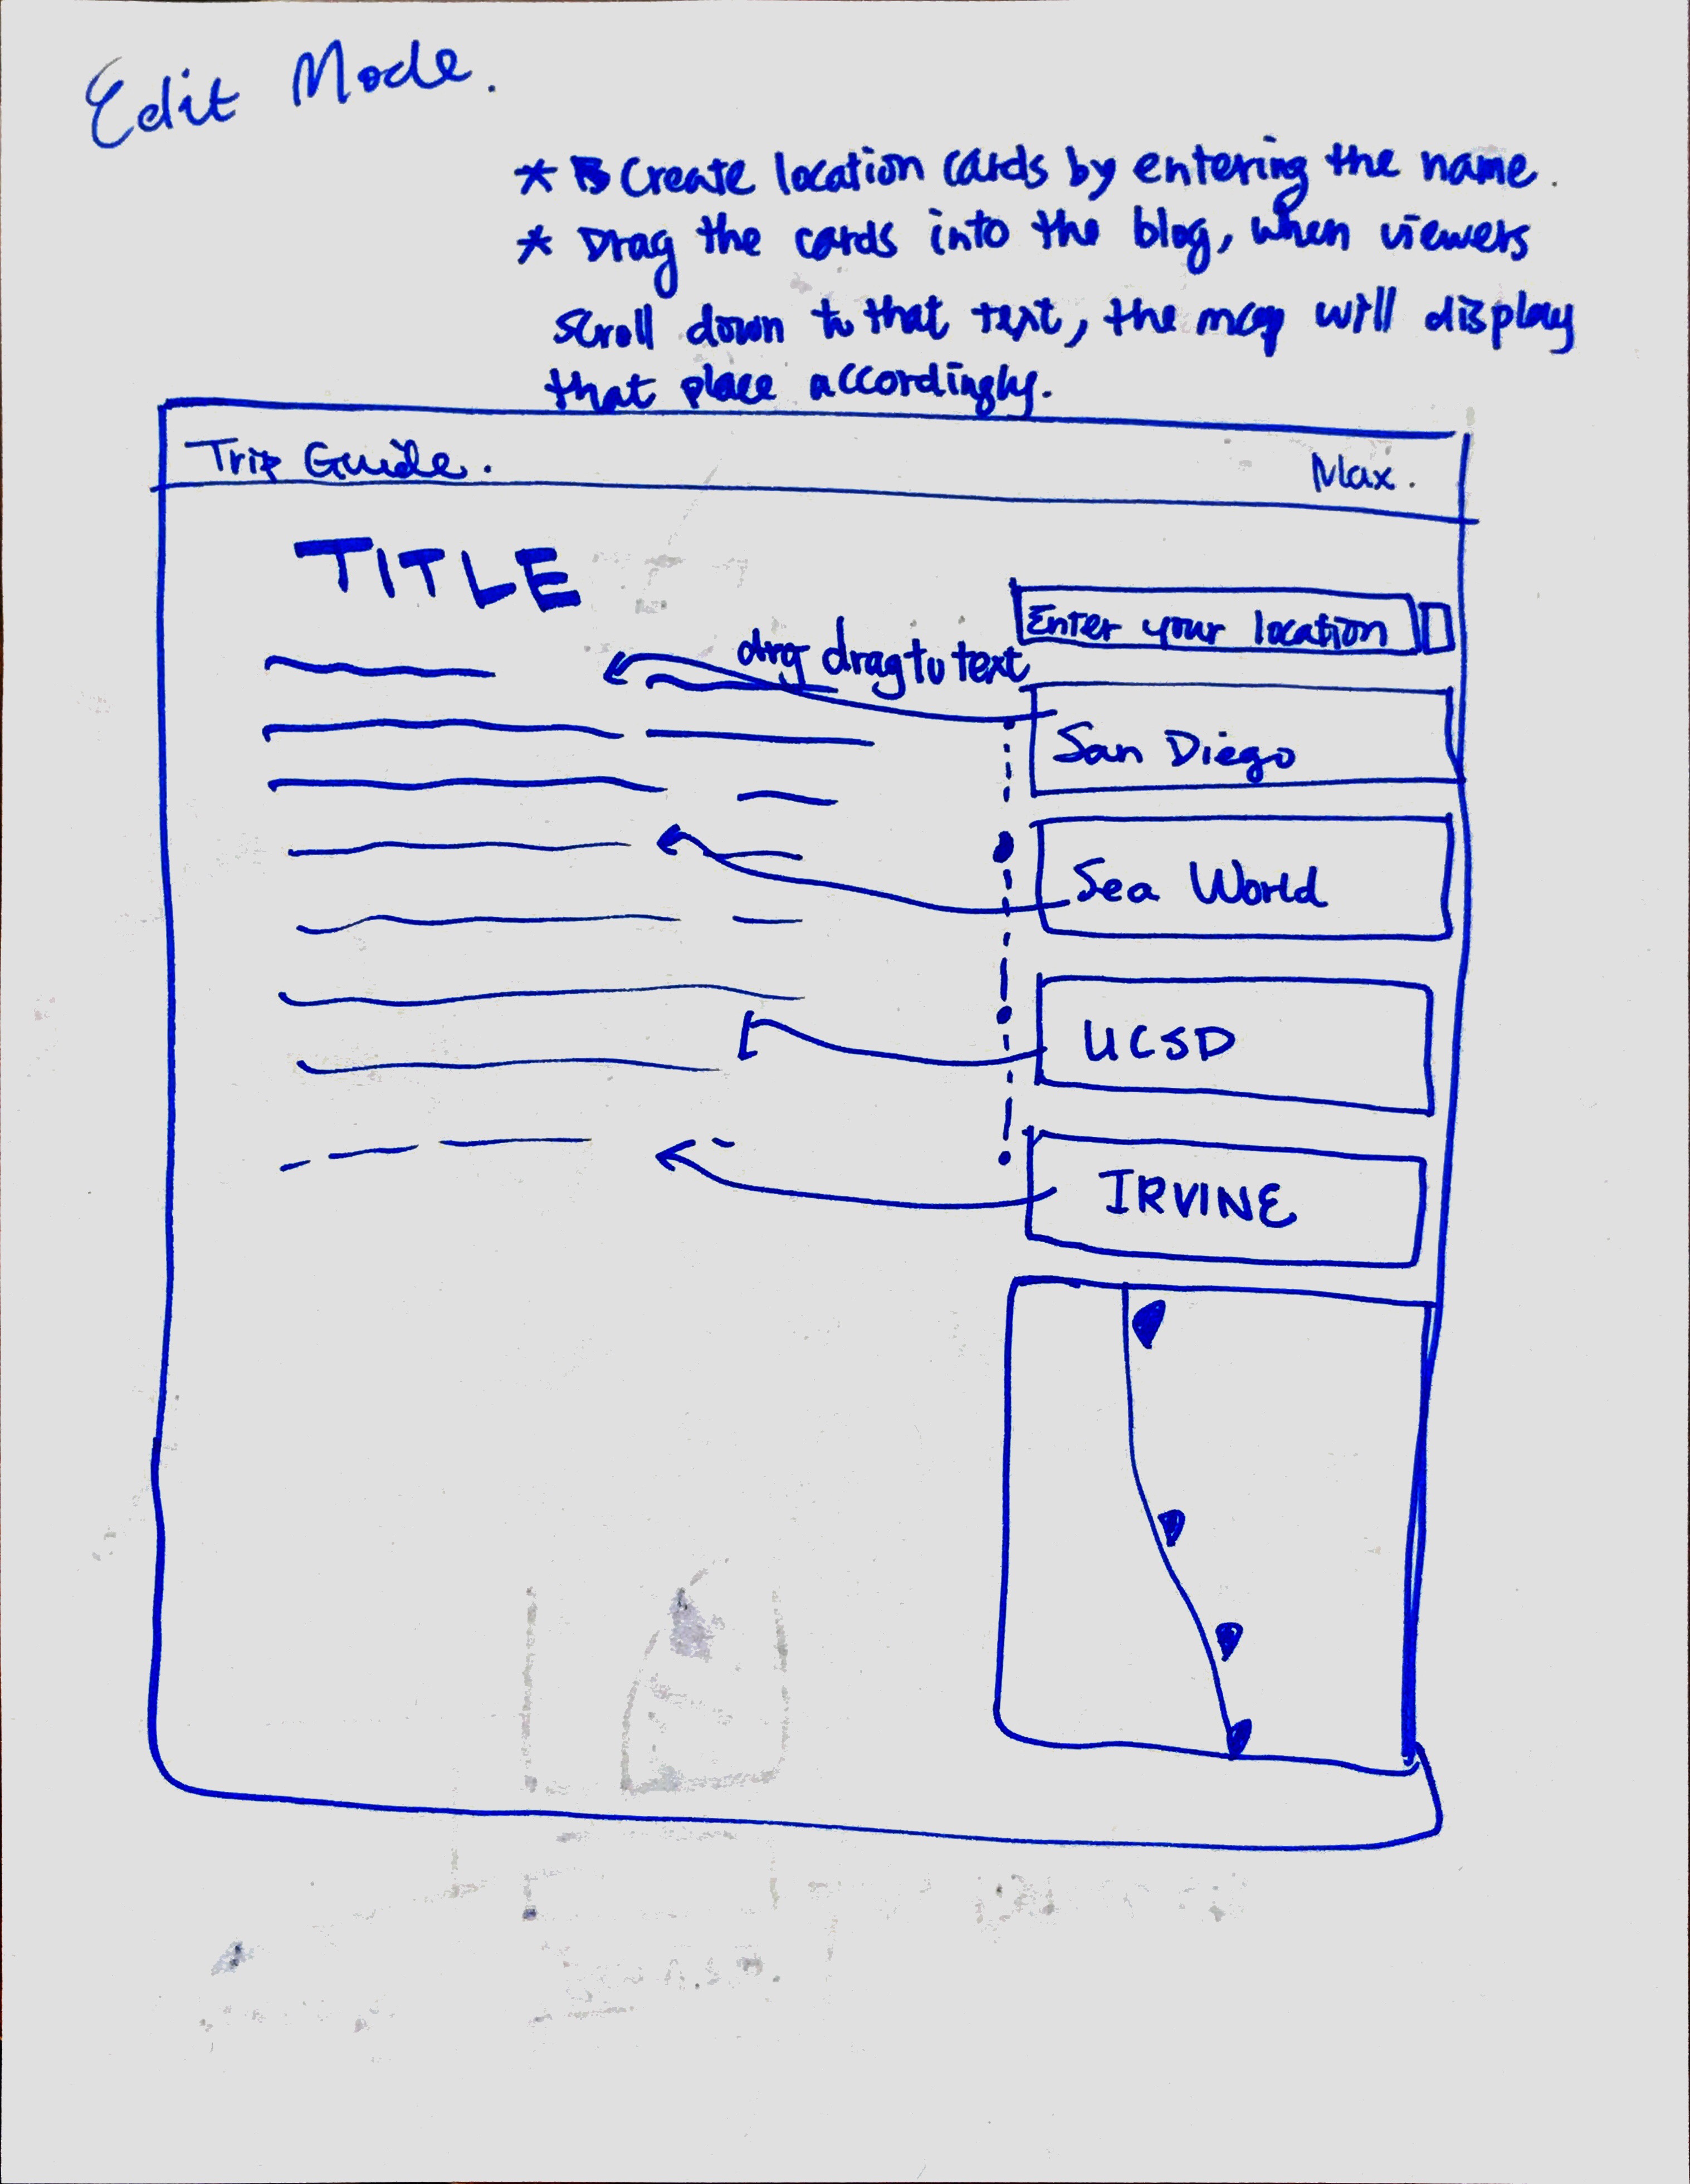 Edit Mode.
* Create location cards by entering the name.
* Drag the cards into the blog, when viewers
scroll down to that text, the map will display
that place accordingly.
Trip Guide.
Max.
TITLE
Enter your location
drag to text
San Diego
Sea World
UCSD
IRVINE